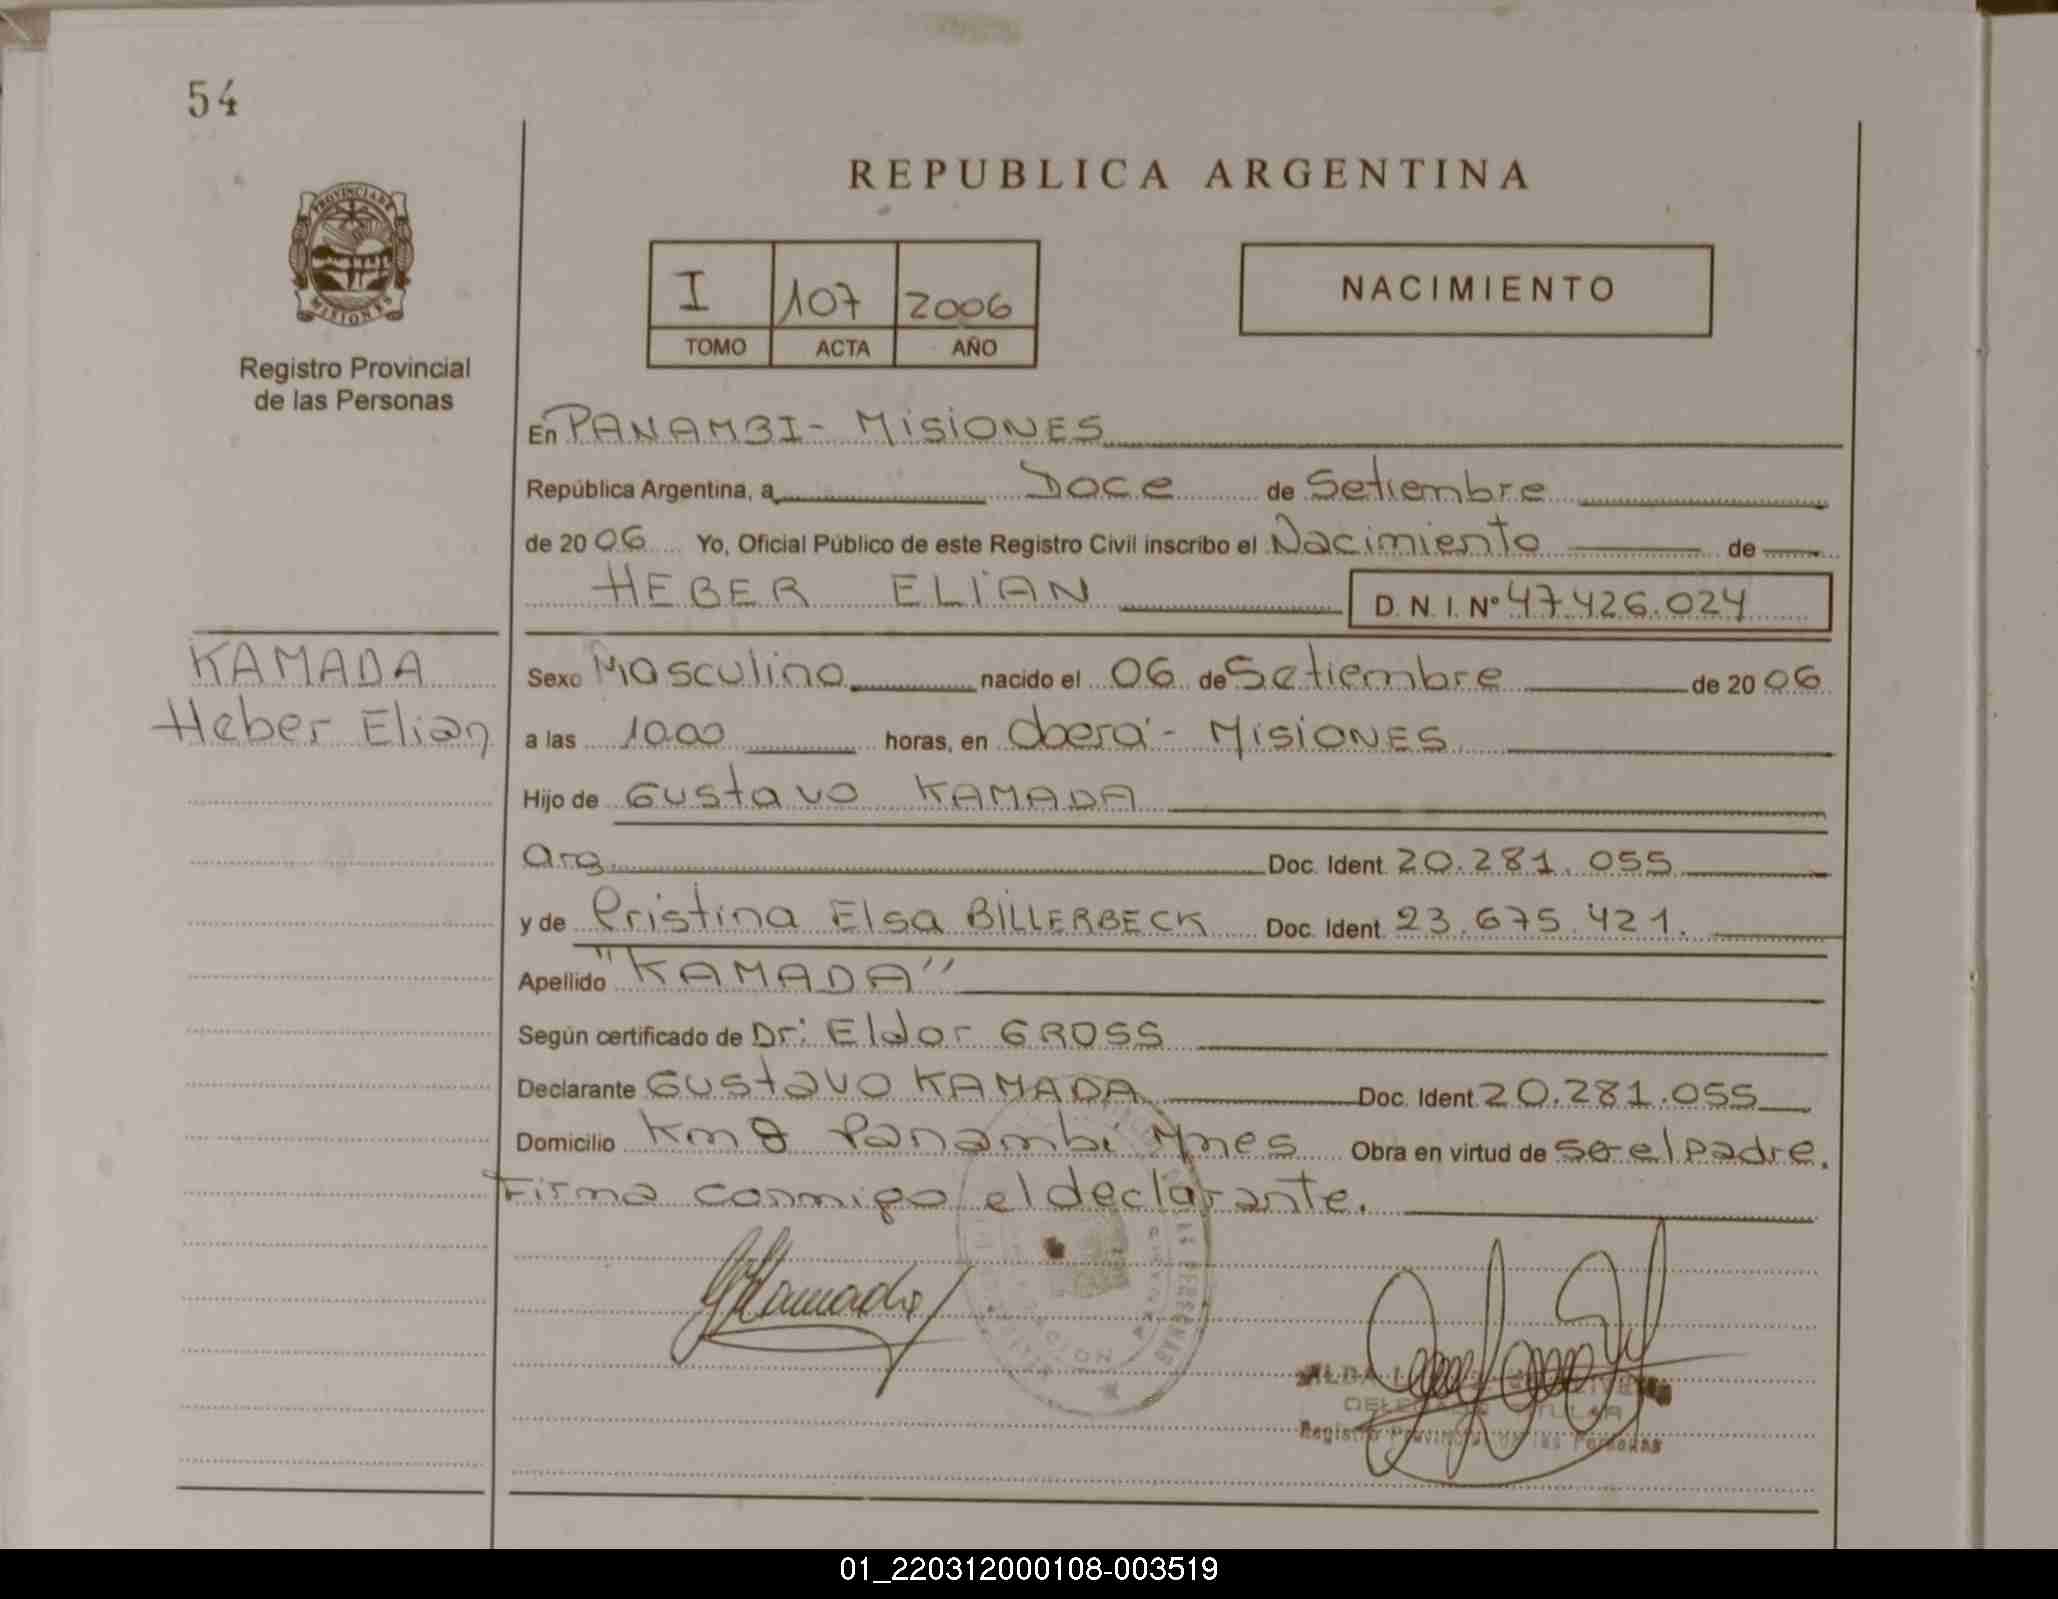 54
PROVINCIA DE
MISIONES
Registro Provincial
de las Personas
REPUBLICA ARGENTINA
I 107 2006
TOMO ACTA AÑO
NACIMIENTO
En PANAMBI - MISIONES
República Argentina, a Doce de Setiembre
de 2006 Yo, Oficial Público de este Registro Civil inscribo el Nacimiento de
HEBER ELIAN D. N. I. Nº 47.426.024
KAMADA
Heber Elian
Sexo Masculino nacido el 06 de Setiembre de 2006
a las 10.00 horas, en Oberá - MISIONES
Hijo de Gustavo KAMADA
Arg. Doc. Ident. 20.281.055
y de Cristina Elsa BILLERBECK Doc. Ident. 23.675.421.
Apellido "KAMADA"
Según certificado de Dr: Eldor GROSS
Declarante Gustavo KAMADA Doc. Ident. 20.281.055
Domicilio Km 8 Panambi Mnes Obra en virtud de ser el padre.
Firma conmigo el declarante.
GKamada
Registro Provincial de las Personas
01_220312000108-003519